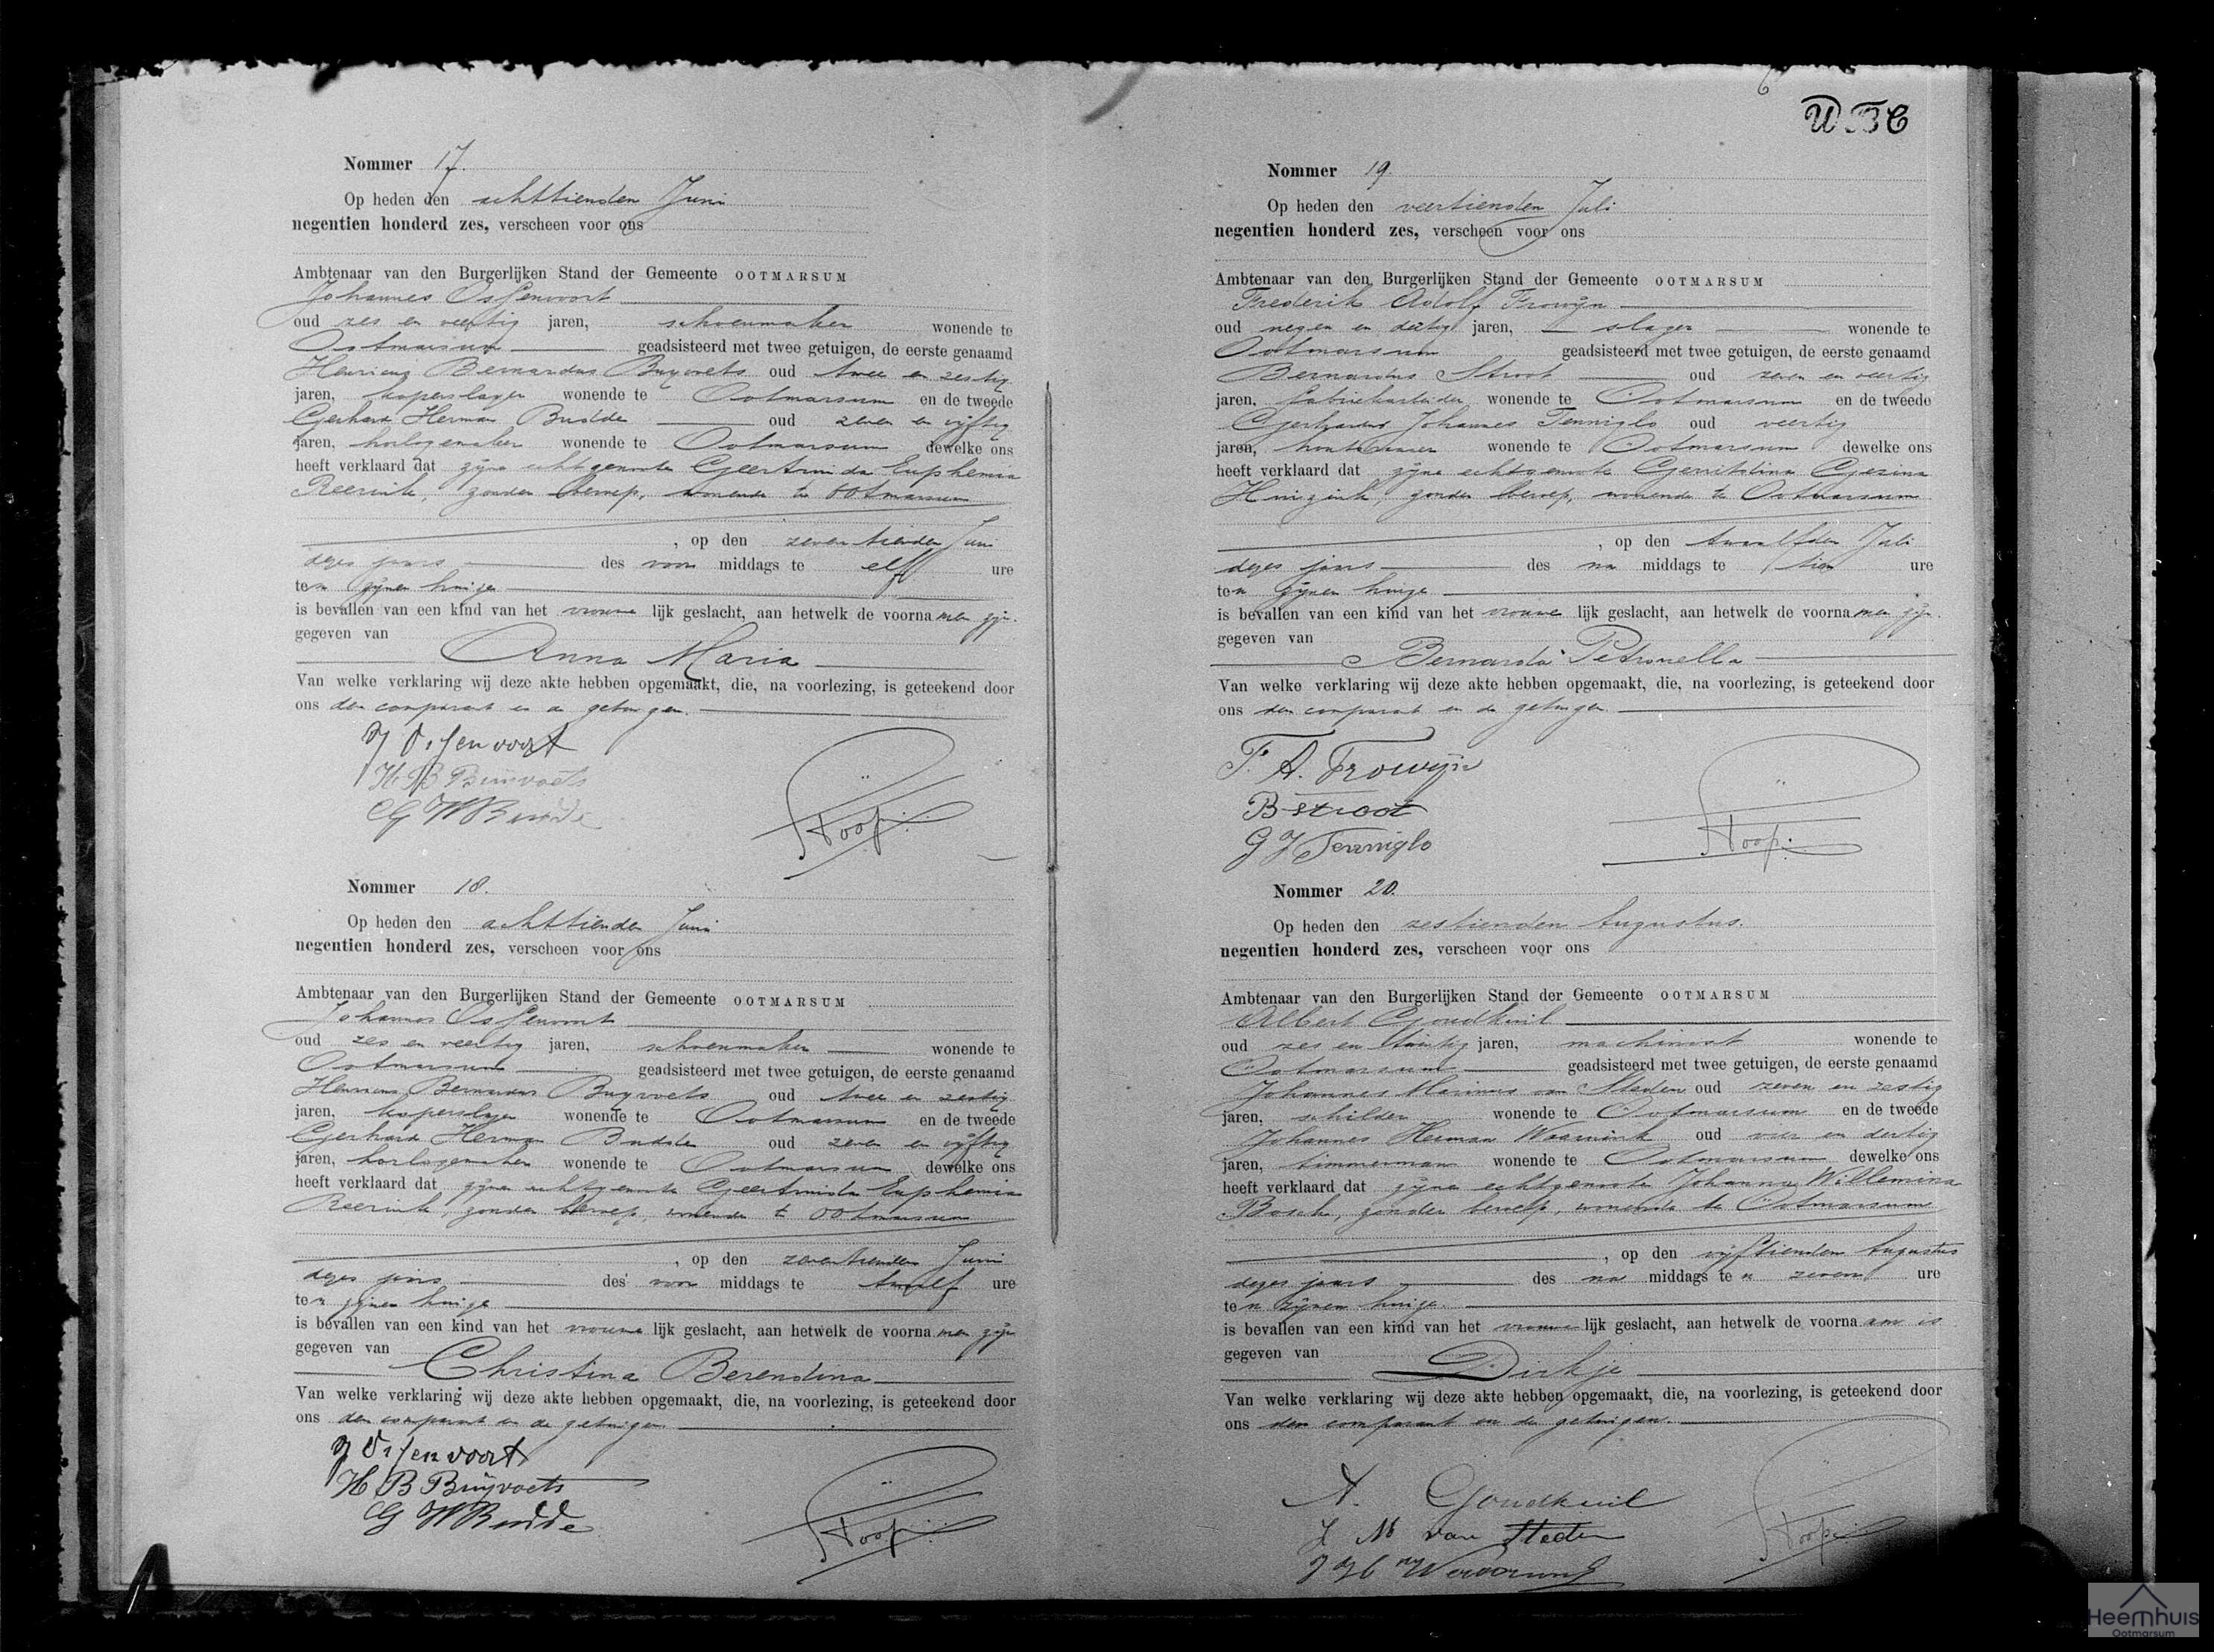 Nommer 17.
Op heden den achttienden Juni
negentien honderd zes, verscheen voor ons
Ambtenaar van den Burgerlijken Stand der Gemeente OOTMARSUM
Johannes Ossenvoort
oud zes en veertig jaren, schoenmaker wonende te
Ootmarsum geadsisteerd met twee getuigen, de eerste genaamd
Henricus Bernardus Buyvoets oud twee en zestig
jaren, koperslager wonende te Ootmarsum en de tweede
Gerhard Herman Budde oud zeven en vijftig
jaren, horlogemaker wonende te Ootmarsum dewelke ons
heeft verklaard dat zijne echtgenoote Geertruida Euphemia
Reerink, zonder beroep, wonende te Ootmarsum
, op den zeventienden Juni
dezes jaars des voor middags te elf ure
ten zijnen huize
is bevallen van een kind van het vrouwe lijk geslacht, aan hetwelk de voorna men zijn
gegeven van
Anna Maria
Van welke verklaring wij deze akte hebben opgemaakt, die, na voorlezing, is geteekend door
ons den comparant en de getuigen.
J Ossenvoort
H B Buijvoets
G H Budde
Nommer 18.
Op heden den achttienden Juni
negentien honderd zes, verscheen voor ons
Ambtenaar van den Burgerlijken Stand der Gemeente OOTMARSUM
Johannes Ossenvoort
oud zes en veertig jaren, schoenmaker wonende te
Ootmarsum geadsisteerd met twee getuigen, de eerste genaamd
Henricus Bernardus Buyvoets oud twee en zestig
jaren, koperslager wonende te Ootmarsum en de tweede
Gerhard Herman Budde oud zeven en vijftig
jaren, horlogemaker wonende te Ootmarsum dewelke ons
heeft verklaard dat zijne echtgenoote Geertruida Euphemia
Reerink, zonder beroep, wonende te Ootmarsum
, op den zeventienden Juni
dezes jaars des voor middags te twaalf ure
ten zijnen huize
is bevallen van een kind van het vrouwe lijk geslacht, aan hetwelk de voorna men zijn
gegeven van
Christina Berendina
Van welke verklaring wij deze akte hebben opgemaakt, die, na voorlezing, is geteekend door
ons den comparant en de getuigen.
J Ossenvoort
H B Buijvoets
G H Budde
Nommer 19
Op heden den veertienden Juli
negentien honderd zes, verscheen voor ons
Ambtenaar van den Burgerlijken Stand der Gemeente OOTMARSUM
Frederik Adolf Frowijn
oud negen en dertig jaren, slager wonende te
Ootmarsum geadsisteerd met twee getuigen, de eerste genaamd
Bernardus Stroot oud zeven en veertig
jaren, fabriekarbeider wonende te Ootmarsum en de tweede
Gerhardus Johannes Tenniglo oud veertig
jaren, wonende te Ootmarsum dewelke ons
heeft verklaard dat zijne echtgenoote Gerritdina Gezina
Huizink, zonder beroep, wonende te Ootmarsum
, op den twaalfden Juli
dezes jaars des na middags te tien ure
ten zijnen huize
is bevallen van een kind van het vrouwe lijk geslacht, aan hetwelk de voorna men zijn
gegeven van
Bernarda Petronella
Van welke verklaring wij deze akte hebben opgemaakt, die, na voorlezing, is geteekend door
ons den comparant en de getuigen
F. A. Frowijn
B Stroot
G J Tenniglo
Nommer 20.
Op heden den zestienden Augustus.
negentien honderd zes, verscheen voor ons
Ambtenaar van den Burgerlijken Stand der Gemeente OOTMARSUM
Albert Goudkuil
oud zes en twintig jaren, machinist wonende te
Ootmarsum geadsisteerd met twee getuigen, de eerste genaamd
Johannes Marinus van Steden oud zeven en zestig
jaren, schilder wonende te Ootmarsum en de tweede
Johannes Herman oud vier en dertig
jaren, timmerman wonende te Ootmarsum dewelke ons
heeft verklaard dat zijne echtgenoote Johanna Willemina
Bosch, zonder beroep, wonende te Ootmarsum
, op den vijftienden Augustus
dezes jaars des na middags te zeven ure
ten zijnen huize.
is bevallen van een kind van het vrouwe lijk geslacht, aan hetwelk de voorna am is
gegeven van
Dirkje
Van welke verklaring wij deze akte hebben opgemaakt, die, na voorlezing, is geteekend door
ons den comparant en de getuigen.
A. Goudkuil
J M van Steden
J H
Heemhuis
Ootmarsum